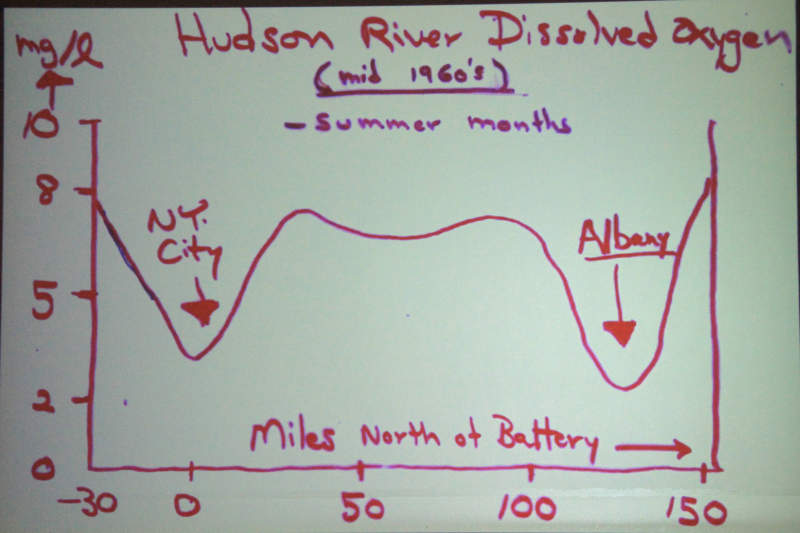 mg/l
Hudson River Dissolved Oxygen
(mid 1960's)
- summer months
10
8
5
2
0
N.Y.
City
Albany
Miles North of Battery
-30 0 50 100 150